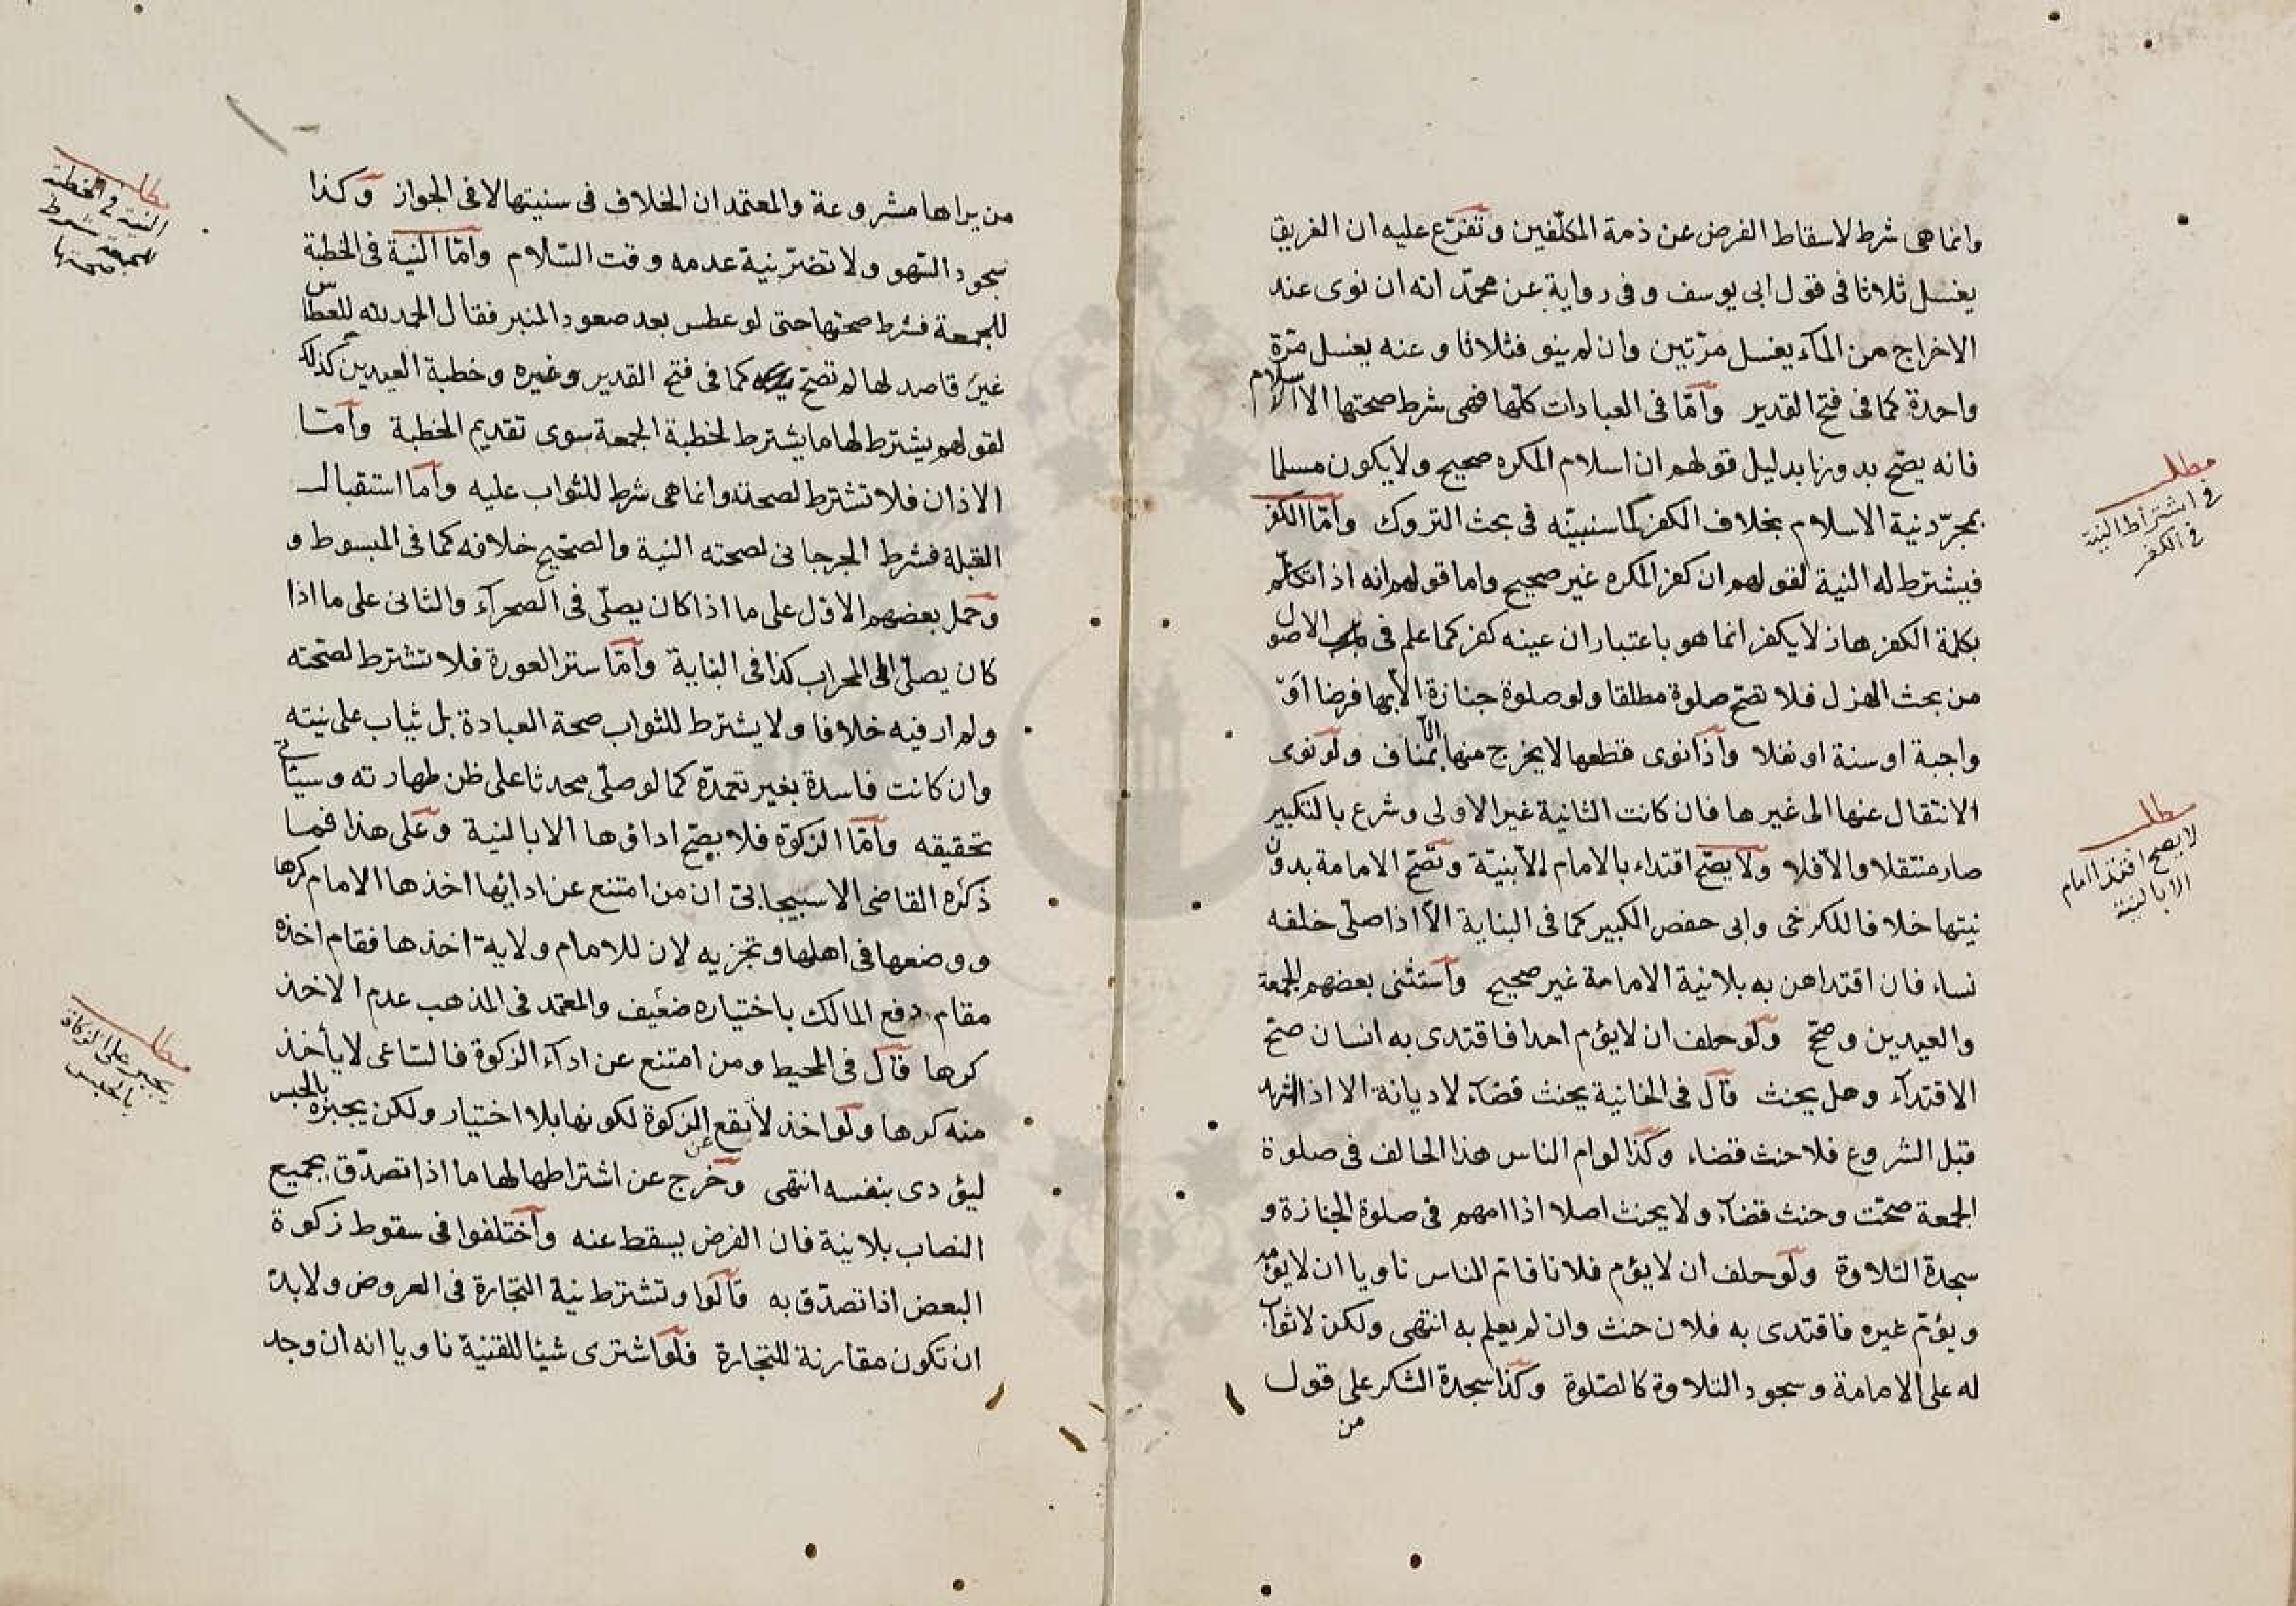 وانما هى شرط لاسقاط الفرض عن ذمة المكلّفين وتفرّع عليه ان الغريق
يغسل ثلاثا فى قول ابى يوسف وفى رواية عن محمّد انه ان نوى عند
الاخراج من المآء يغسل مرّتين وان لم ينو فثلاثا وعنه يغسل مرّة
واحدة كما فى فتح القدير وأمّا فى العبادات كلّها فهى شرط صحتها الا الاسلام
فانه يصّح بدونها بدليل قولهم ان اسلام المكره صحيح ولا يكون مسلما
بمجرّد نية الاسلام بخلاف الكفر كما سنبيّنه فى بحث التروك وأمّا الكفر
فيشترط له النية لقولهم ان كفر المكره غير صحيح واما قولهم انه اذا تكلّم
بكلمة الكفر هازلا يكفر انما هو باعتبار ان عينه كفر كما علم فى الاصول
من بحث الهزل فلا تصّح صلوة مطلقا ولو صلوة جنازة الّا بها فرضا أوْ
واجبة او سنة او نفلا وآذا نوى قطعها لا يخرج منها الّا بمناف ولو نوى
الانتقال عنها الى غيرها فان كانت الثانية غير الاولى وشرع بالتكبير
صار منتقلا والّا فلا ولا يصّح اقتداء بالامام الّا بنيّة وتصّح الامامة بدون
نيتها خلافا للكرخى وابى حفص الكبير كما فى البناية الّا اذا صلّى خلفه
نساء فان اقتداهن به بلا نية الامامة غير صحيح وآستثنى بعضهم الجمعة
والعيدين وصحّ ولو حلف ان لا يؤم احدا فاقتدى به انسان صحّ
الاقتدآء وهل يحنث قآل فى الخانية يحنث قضآء لا ديانة الا اذا اشهد
قبل الشروع فلا حنث قضاء وكذا لو ام الناس هذا الحالف فى صلوة
الجمعة صحّت وحنث قضآء ولا يحنث اصلا اذا امهم فى صلوة الجنازة و
سجدة التلاوة ولو حلف ان لا يؤم فلانا فامّ الناس ناويا ان لا يؤمه
ويؤمّ غيره فاقتدى به فلان حنث وان لم يعلم به انتهى ولكن لا ثوآب
له على الامامة وسجود التلاوة كالصّلوة وكذا سجدة الشكر على قول
من
مطلب
فى اشتراط النية
فى الكفر
مطلب
لا يصح اقتدا امام
الا بالنية
من يراها مشروعة والمعتمد ان الخلاف فى سنيتها لا فى الجواز وكذا
سجود السّهو ولا تضرّ نيّة عدمه وقت السّلام وأمّا النيّة فى الخطبة
للجمعة فشرط صحتها حتى لو عطس بعد صعود المنبر فقال الحمد لله للعطاس
غيرَ قاصد لها لم تصّح كما فى فتح القدير وغيره وخطبة العيدين كذلك
لقولهم يشترط لها ما يشترط لخطبة الجمعة سوى تقديم الخطبة وأمّا
الاذان فلا تشترط لصحته وانما هى شرط للثواب عليه وأمّا استقبال
القبلة فشرط الجرجانى لصحته النية والصّحيح خلافه كما فى المبسوط و
وحمل بعضهم الاوّل على ما اذا كان يصلّى فى الصحرآء والثانى على ما اذا
كان يصلّى الى المحراب كذا فى البناية وأمّا ستر العورة فلا تشترط لصّحته
ولم ار فيه خلافا ولا يشترط للثواب صحة العبادة بل يثاب على نيته
وان كانت فاسدة بغير تعمّده كما لو صلّى محدثا على ظن طهارته وسيأتى
تحقيقه وأمّا الزكوة فلا يصّح اداؤها الا بالنية وعلى هذا فما
ذكره القاضى الاسبيجابىّ ان من امتنع عن ادائها اخذها الامام كرها
ووضعها فى اهلها وتجزيه لان للامام ولاية اخذها فقام اخذه
مقام دفع المالك باختياره ضعيف والمعتمد فى المذهب عدم الاخذ
كرها قآل فى المحيط ومن امتنع عن ادآء الزكوة فالسّاعى لا يأخذ
منه كرها ولو اخذ لا تقع عن الزكوة لكونها بلا اختيار ولكن يجبره بالحبس
ليؤدى بنفسه انتهى وخرج عن اشتراطها لها ما اذا تصدّق بجميع
النصاب بلا نية فان الفرض يسقط عنه وآختلفوا فى سقوط زكوة
البعض اذا تصدّق به قآلوا وتشترط نية التجارة فى العروض ولا بدّ
ان تكون مقارنة للتجارة فلو اشترى شيئا للقنية ناويا انه ان وجد
مطلب
النية فى الخطبة
للجمعة شرط
صحتها
مطلب
يجبر على الزكاة
بالحبس